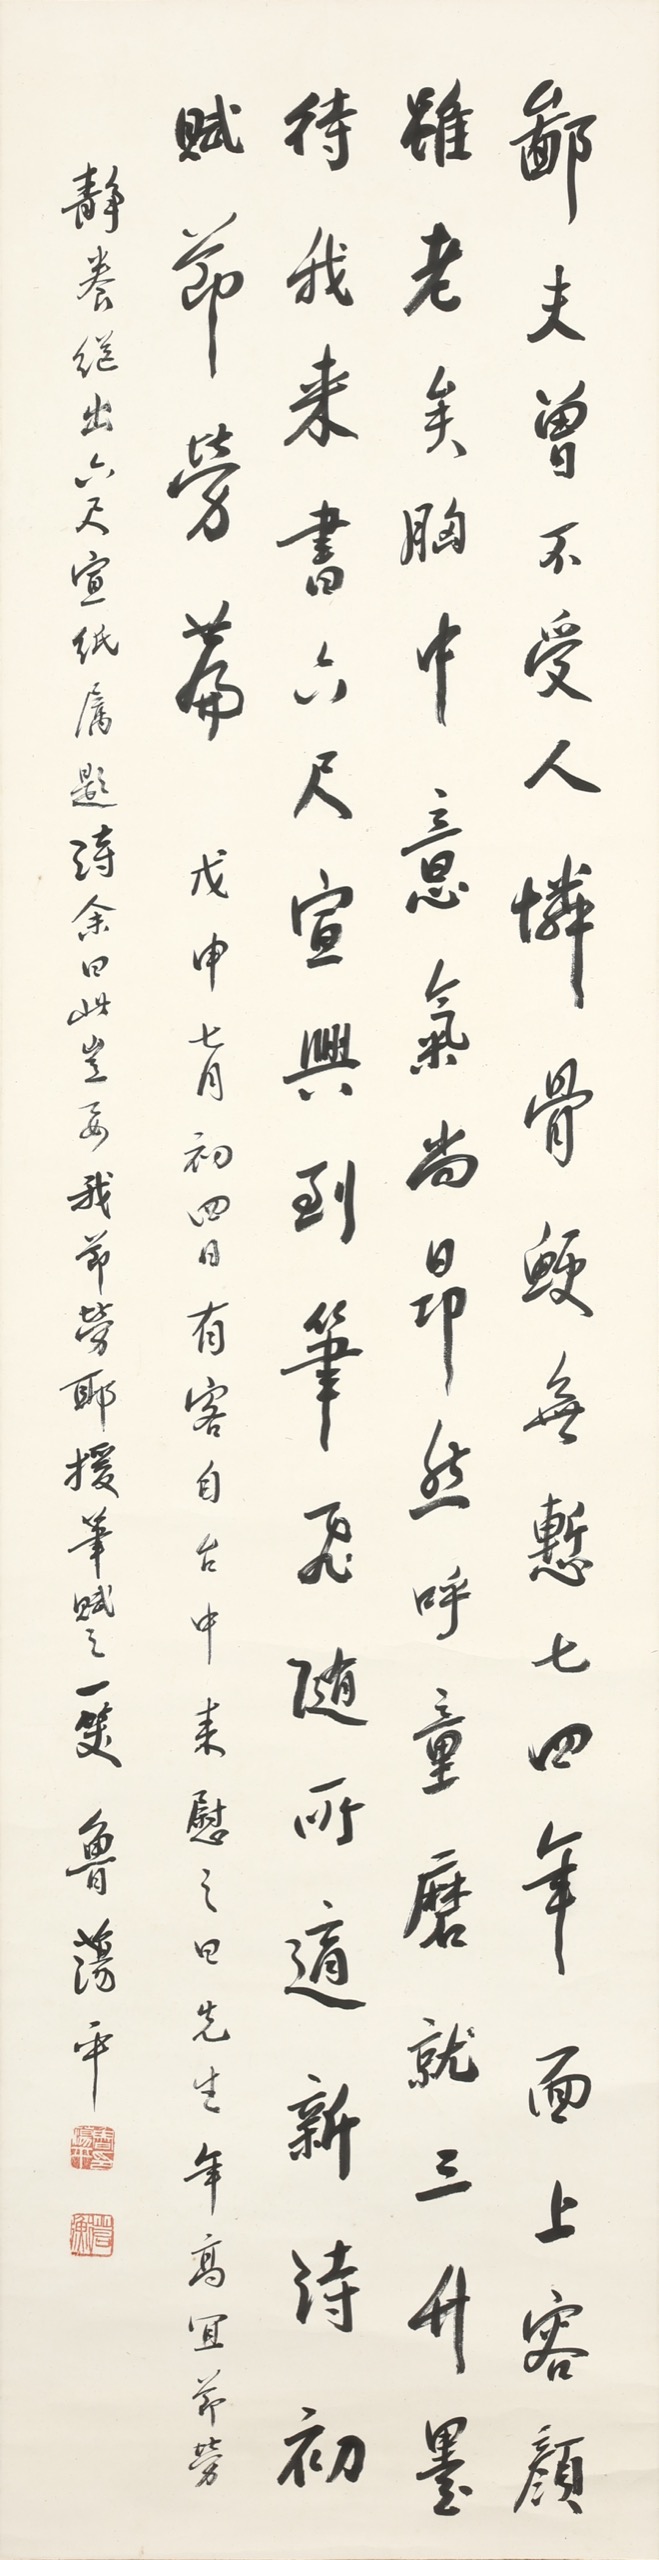 鄙夫曾不受人憐骨鯁無慙七四年面上容顏
雖老矣胸中意氣尚昂然呼童磨就三升墨
待我來書六尺宣興到筆飛隨所適新詩初
賦節勞篇 戊申七月初四日有客自台中来慰之曰先生年高宜節勞
靜養继出六尺宣纸屬題詩余曰此豈要我節勞耶援筆賦之一笑 魯蕩平